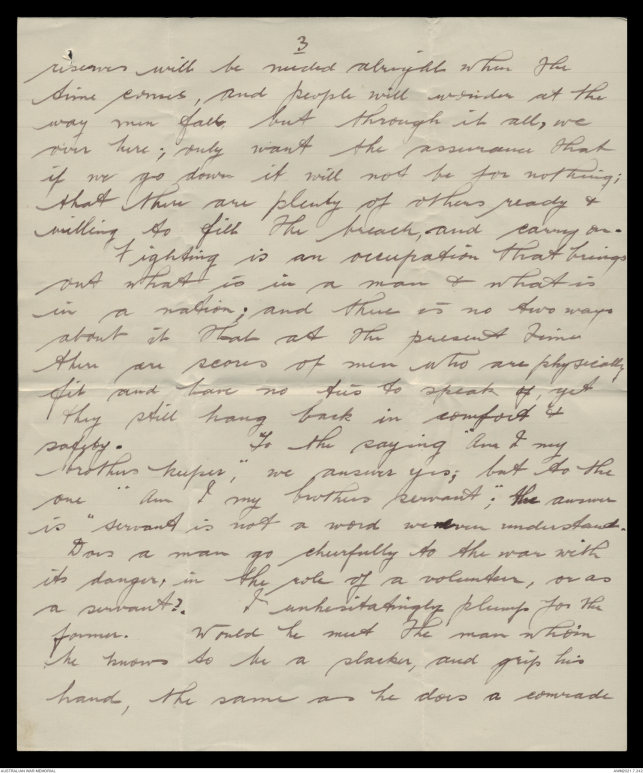 3
reserves will be needed alright when the
time comes, and people will wonder at the
way men fall but through it all, we
over here; only want the assurance that
if we go down it will not be for nothing;
that there are plenty of others ready &
willing to fill the breach, and carry on.
Fighting is an occupation that brings
out what is in a man & what is
in a nation; and there is no two ways
about it that at the present time
there are scores of men who are physically
fit and have no ties to speak of, yet
they still hang back in comfort &
safety. To the saying "Am I my
brothers keeper," we answer yes; but to the
one "am I my brothers servant"; the answer
is "servant is not a word we even understand.
Does a man go cheerfully to the war with
its danger, in the role of a volunteer, or as
a servant?. I unhesitatingly plump for the
former. Would he meet the man whom
he knows to be a slacker, and grip his
hand, the same as he does a comrade
AUSTRALIAN WAR MEMORIAL